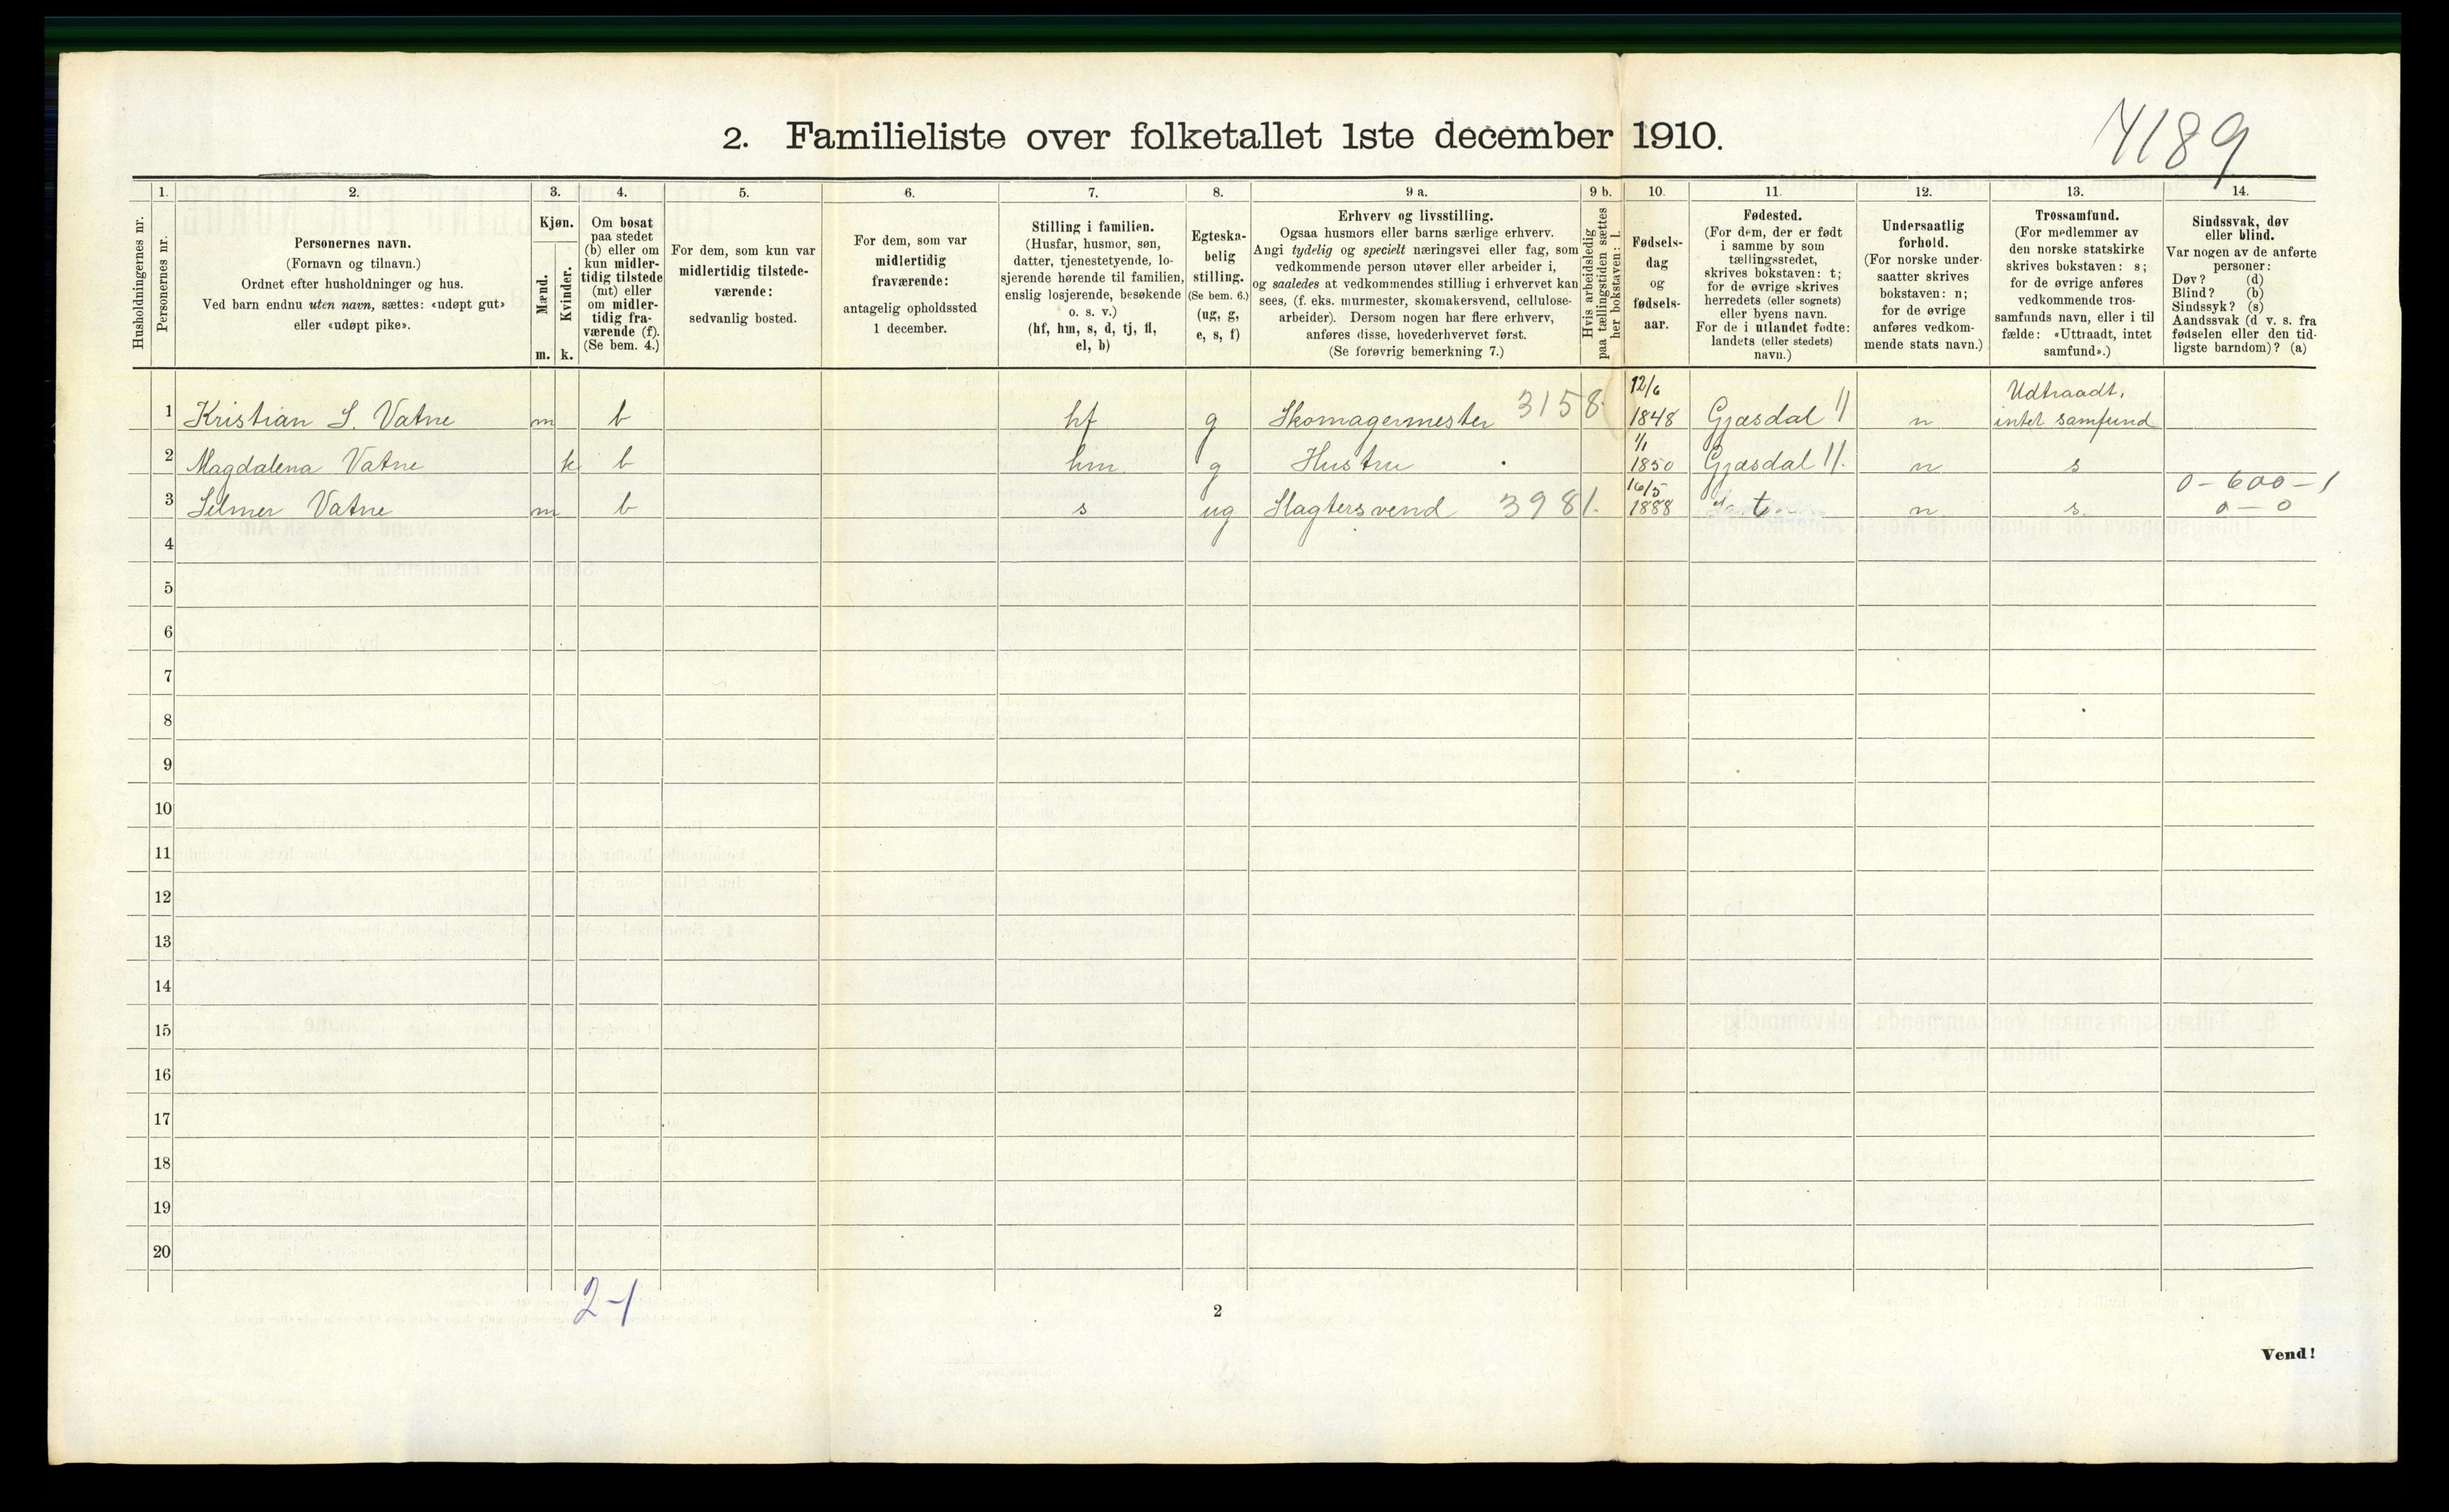 4189
2. Familieliste over folketallet 1ste december 1910.
1. 2. 3. 4. 5. 6. 7. 8. 9 a. 9 b. 10. 11. 12. 13. 14.
Husholdningernes nr.
Personernes nr.
Personernes navn.
(Fornavn og tilnavn.)
Ordnet efter husholdninger og hus.
Ved barn endnu uten navn, sættes: «udøpt gut»
eller «udøpt pike».
Kjøn.
Mænd.
Kvinder.
m. k.
Om bosat
paa stedet
(b) eller om
kun midler-
tidig tilstede
(mt) eller
om midler-
tidig fra-
værende (f).
(Se bem. 4.)
For dem, som kun var
midlertidig tilstede-
værende:
sedvanlig bosted.
For dem, som var
midlertidig
fraværende:
antagelig opholdssted
1 december.
Stilling i familien.
(Husfar, husmor, søn,
datter, tjenestetyende, lo-
sjerende hørende til familien,
enslig losjerende, besøkende
o. s. v.)
(hf, hm, s, d, tj, fl,
el, b)
Egteska-
belig
stilling.
(Se bem. 6.)
(ug, g,
e, s, f)
Erhverv og livsstilling.
Ogsaa husmors eller barns særlige erhverv.
Angi tydelig og specielt næringsvei eller fag, som
vedkommende person utøver eller arbeider i,
og saaledes at vedkommendes stilling i erhvervet kan
sees, (f. eks. murmester, skomakersvend, cellulose-
arbeider). Dersom nogen har flere erhverv,
anføres disse, hovederhvervet først.
(Se forøvrig bemerkning 7.)
Hvis arbeidsledig
paa tællingstiden sættes
her bokstaven: l.
Fødsels-
dag
og
fødsels-
aar.
Fødested.
(For dem, der er født
i samme by som
tællingsstedet,
skrives bokstaven: t;
for de øvrige skrives
herredets (eller sognets)
eller byens navn.
For de i utlandet fødte:
landets (eller stedets)
navn.)
Undersaatlig
forhold.
(For norske under-
saatter skrives
bokstaven: n;
for de øvrige
anføres vedkom-
mende stats navn.)
Trossamfund.
(For medlemmer av
den norske statskirke
skrives bokstaven: s;
for de øvrige anføres
vedkommende tros-
samfunds navn, eller i til
fælde: «Uttraadt, intet
samfund».)
Sindssvak, døv
eller blind.
Var nogen av de anførte
personer:
Døv? (d)
Blind? (b)
Sindssyk? (s)
Aandssvak (d v. s. fra
fødselen eller den tid-
ligste barndom)? (a)
12/6 Udtraadt,
1 Kristian S. Vatne m b hf g Skomagermester 3158. 1848 Gjæsdal 11 n intet samfund
1/1
2 Magdalena Vatne k b hm g Hustru 1850 Gjæsdal 11. n s
16/5 0-600-1
3 Selmer Vatne m b s ug Slagtersvend 3981. 1888 t n s. 0-0
4
5
6
7
8
9
10
11
12
13
14
15
16
17
18
19
20
2-1
2
Vend!